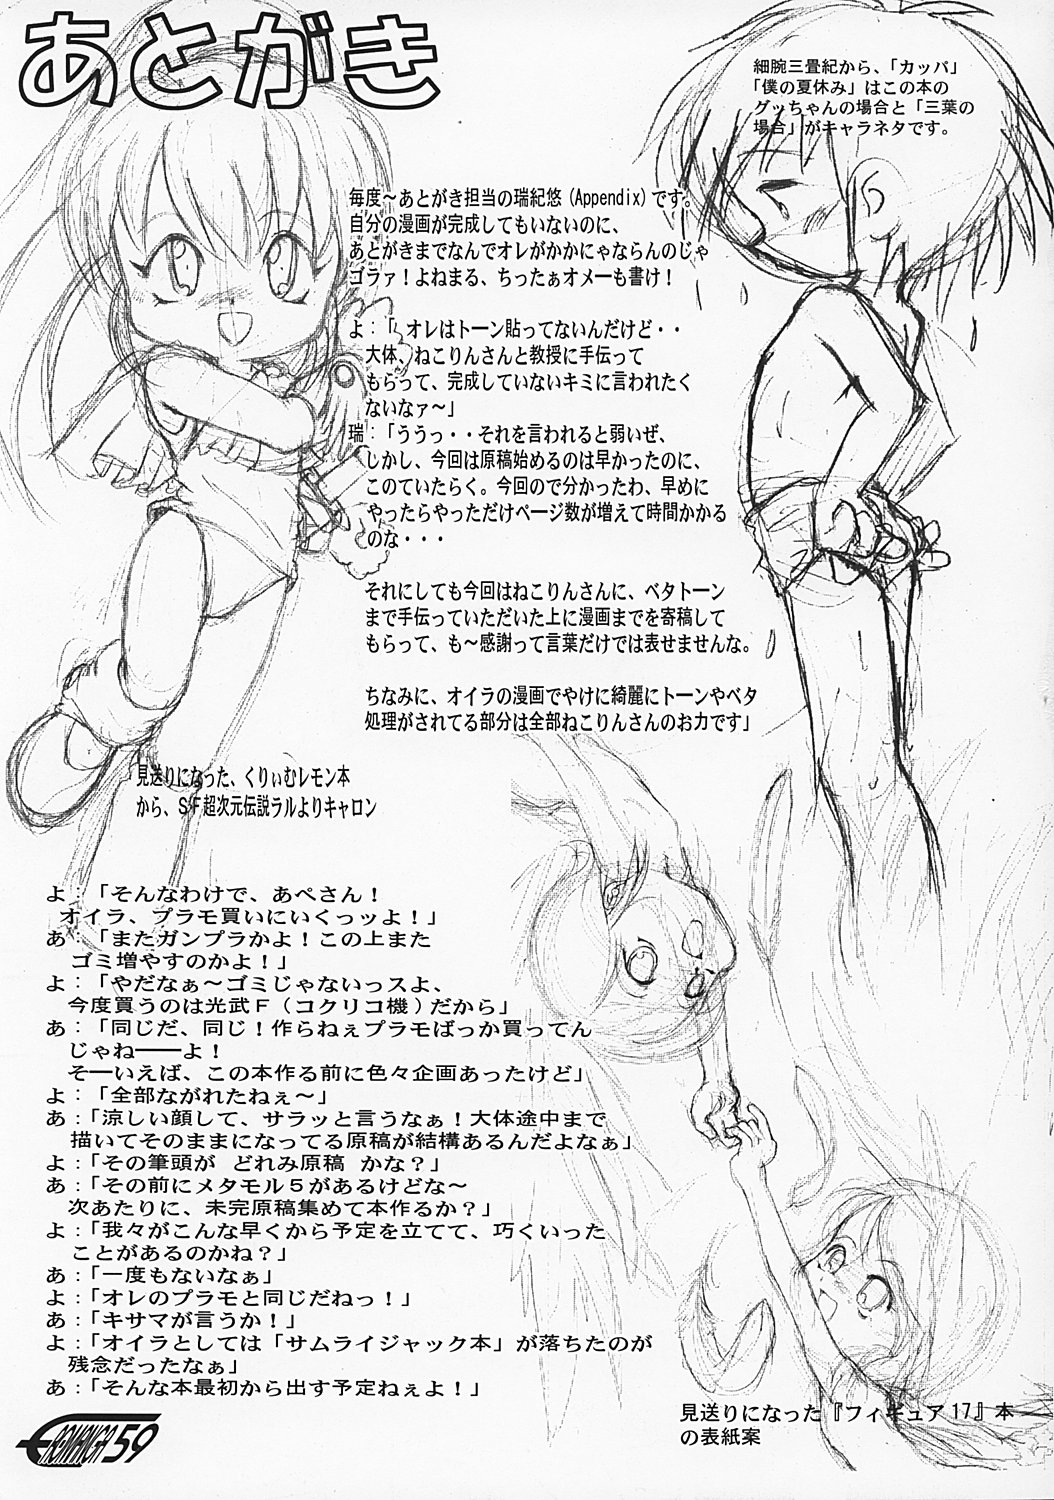 あとがき
細腕三畳紀から、「カッパ」
「僕の夏休み」はこの本の
グッちゃんの場合と「三葉の
場合」がキャラネタです。
毎度～あとがき担当の瑞紀悠(Appendix)です。
自分の漫画が完成してもいないのに、
あとがきまでなんでオレがかかにゃならんのじゃ
ゴラァ！よねまる、ちったぁオメーも書け！
よ：「オレはトーン貼ってないんだけど・・
大体、ねこりんさんと教授に手伝って
もらって、完成していないキミに言われたく
ないなァ～」
瑞：「ううっ・・それを言われると弱いぜ、
しかし、今回は原稿始めるのは早かったのに、
このていたらく。今回ので分かったわ、早めに
やったらやっただけページ数が増えて時間かかる
のな・・・
それにしても今回はねこりんさんに、ベタトーン
まで手伝っていただいた上に漫画までを寄稿して
もらって、も～感謝って言葉だけでは表せませんな。
ちなみに、オイラの漫画でやけに綺麗にトーンやベタ
処理がされてる部分は全部ねこりんさんのお力です」
見送りになった、くりぃむレモン本
から、ＳＦ超次元伝説ラルよりキャロン
よ：「そんなわけで、あぺさん！
オイラ、プラモ買いにいくっッよ！」
あ：「またガンプラかよ！この上また
ゴミ増やすのかよ！」
よ：「やだなぁ～ゴミじゃないっスよ、
今度買うのは光武Ｆ（コクリコ機）だから」
あ：「同じだ、同じ！作らねぇプラモばっか買ってん
じゃねーーよ！
そーいえば、この本作る前に色々企画あったけど」
よ：「全部ながれたねぇ～」
あ：「涼しい顔して、サラッと言うなぁ！大体途中まで
描いてそのままになってる原稿が結構あるんだよなぁ」
よ：「その筆頭が どれみ原稿 かな？」
あ：「その前にメタモル５があるけどな～
次あたりに、未完原稿集めて本作るか？」
よ：「我々がこんな早くから予定を立てて、巧くいった
ことがあるのかね？」
あ：「一度もないなぁ」
よ：「オレのプラモと同じだねっ！」
あ：「キサマが言うか！」
よ：「オイラとしては「サムライジャック本」が落ちたのが
残念だったなぁ」
あ：「そんな本最初から出す予定ねぇよ！」
見送りになった『フィギュア17』本
の表紙案
EROMANGA 59